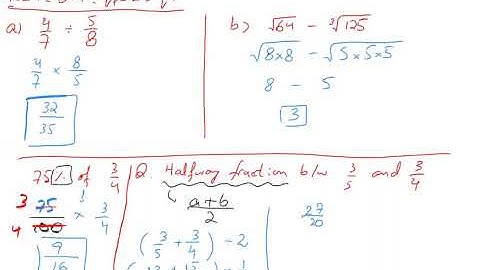 a) 4/7 ÷ 5/8
4/7 × 8/5
32/35
b) √64 - ³√125
√8×8 - √5×5×5
8 - 5
3
75% of 3/4
3 75/100 × 3/4
4
9/16
Q. Halfway fraction b/w 3/5 and 3/4
a+b/2
27/20
(3/5 + 3/4) ÷ 2